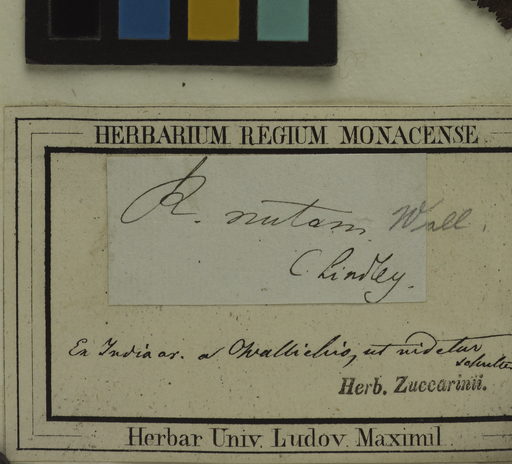 HERBARIUM REGIUM MONACENSE
R. nutans Wall.
Lindley.
Ex India or. a Wallichio, ut videtur
Herb. Zuccarinii.
Herbar Univ. Ludov. Maximil